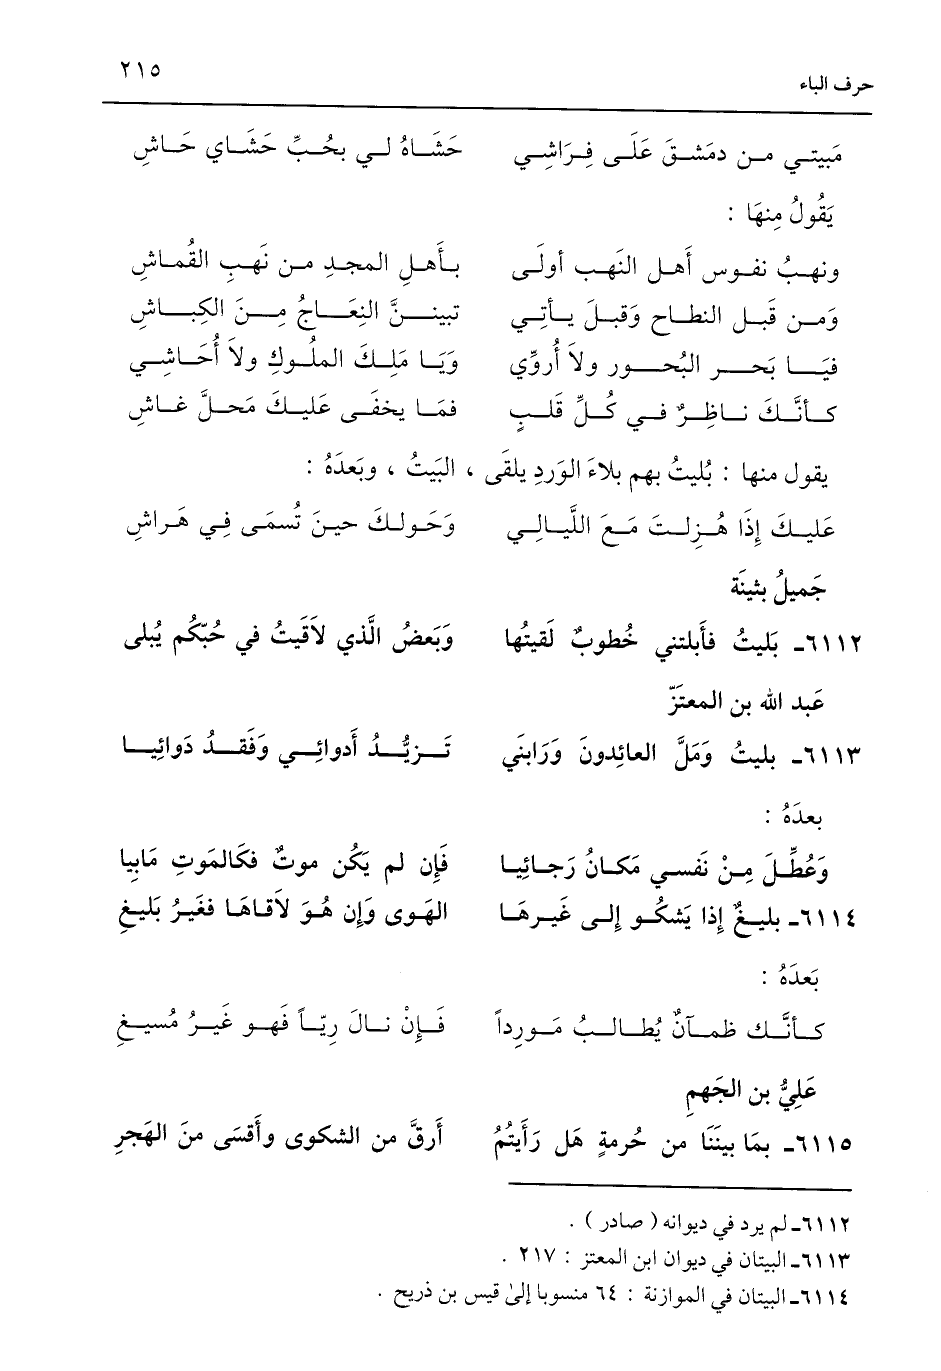 ٢١٥
حرف الباء
مَبيتي من دمَشق عَلَى فِرَاشِي حَشَاهُ لي بِحُبِّ حَشَاي حَاشِ
يَقُولُ مِنهَا :
ونهبُ نفوس أَهل النهب أَولَى بأَهلِ المجدِ من نَهبِ القُماشِ
وَمن قَبل النطاح وَقبلَ يأتي تبينُ النِعَاجُ مِنَ الكِباشِ
فيَا بَحر البُحور ولاَ أُروِّي وَيَا مَلِكَ الملُوكِ ولاَ أُحَاشي
كأنَّكَ ناظِرٌ في كُلِّ قَلبٍ فمَا يخفَى عَليكَ مَحلَّ غاشِ
يقول منها : بُليتُ بهم بلاءَ الوَردِ يلقَى ، البَيتُ ، وبَعدَهُ :
عَليكَ إِذَا هُزِلتَ مَعَ اللَّيالِي وَحَولكَ حينَ تُسمَى فِي هَراشِ
جَميلُ بثينَة
٦١١٢ـ بَليتُ فأَبلتني خُطوبٌ لَقيتُها وَبَعضُ الَّذي لاَقَيتُ في حُبّكُم يُبلى
عَبد الله بن المعتَزّ
٦١١٣ـ بليتُ وَمَلَّ العائِدونَ وَرَابَني تَزيُّدُ أَدوائِي وَفَقدُ دَوائِيا
بعدَهُ :
وَعُطِّلَ مِنْ نَفسي مَكانُ رَجائيا فَإن لم يَكُن موتٌ فكَالمَوتِ مَابِيا
٦١١٤ـ بليغٌ إذا يَشكُو إلى غَيرهَا الهَوى وَإن هُوَ لاَقاهَا فغَيرُ بَليغِ
بَعدَهُ :
كأنَّك ظمآنٌ يُطالبُ مَورداً فَإنْ نالَ ريّاً فهو غَيرُ مُسيغِ
عَلِيُّ بن الجَهمِ
٦١١٥ـ بمَا بيَننَا من حُرمةٍ هَل رَأَيتُمُ أَرقَّ من الشكوى وأَقسَى منَ الهَجرِ
٦١١٢ـ لم يرد في ديوانه ( صادر ) .
٦١١٣ـ البيتان في ديوان ابن المعتز : ٢١٧ .
٦١١٤ـ البيتان في الموازنة : ٦٤ منسوبا إلىٰ قيس بن ذريح .